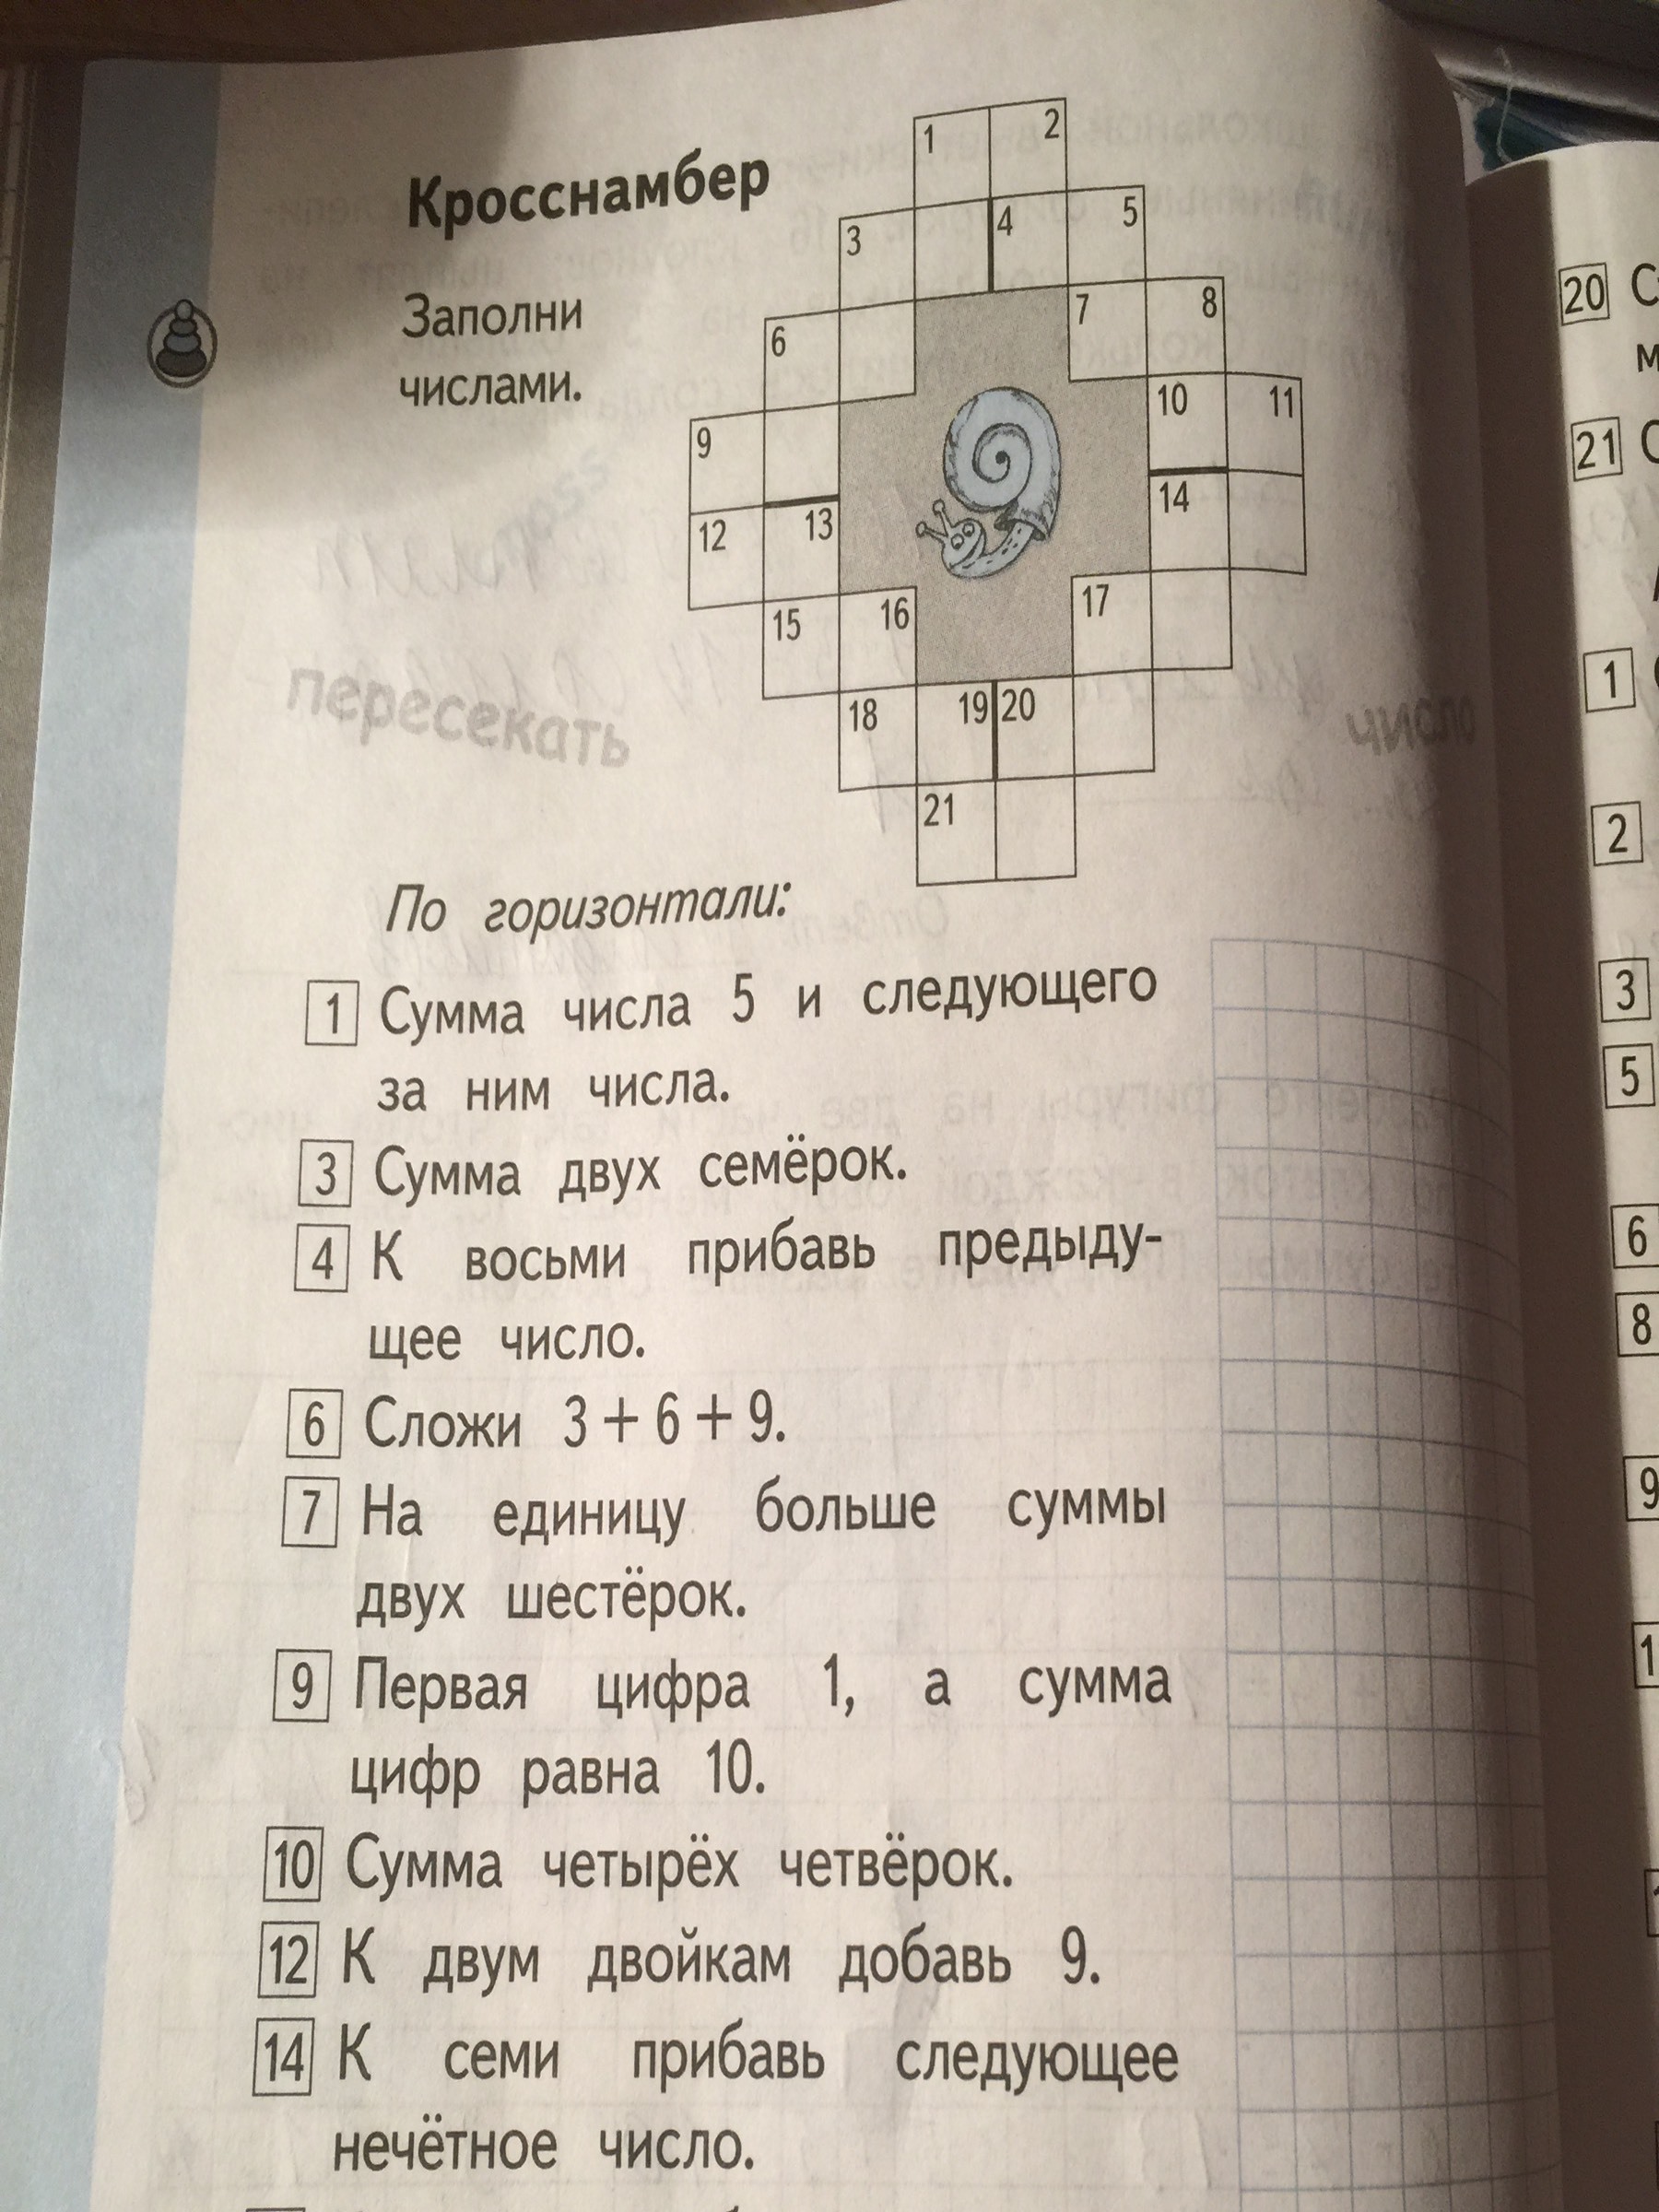 Кросснамбер
Заполни
числами.
1 2
3 4 5
6 7 8
9 10 11
12 13 14
15 16 17
18 19 20
21
пересекать
число
По горизонтали:
1 Сумма числа 5 и следующего
за ним числа.
3 Сумма двух семёрок.
4 К восьми прибавь предыду-
щее число.
6 Сложи 3 + 6 + 9.
7 На единицу больше суммы
двух шестёрок.
9 Первая цифра 1, а сумма
цифр равна 10.
10 Сумма четырёх четвёрок.
12 К двум двойкам добавь 9.
14 К семи прибавь следующее
нечётное число.
20 С
21 С
1
2
3
5
6
8
9